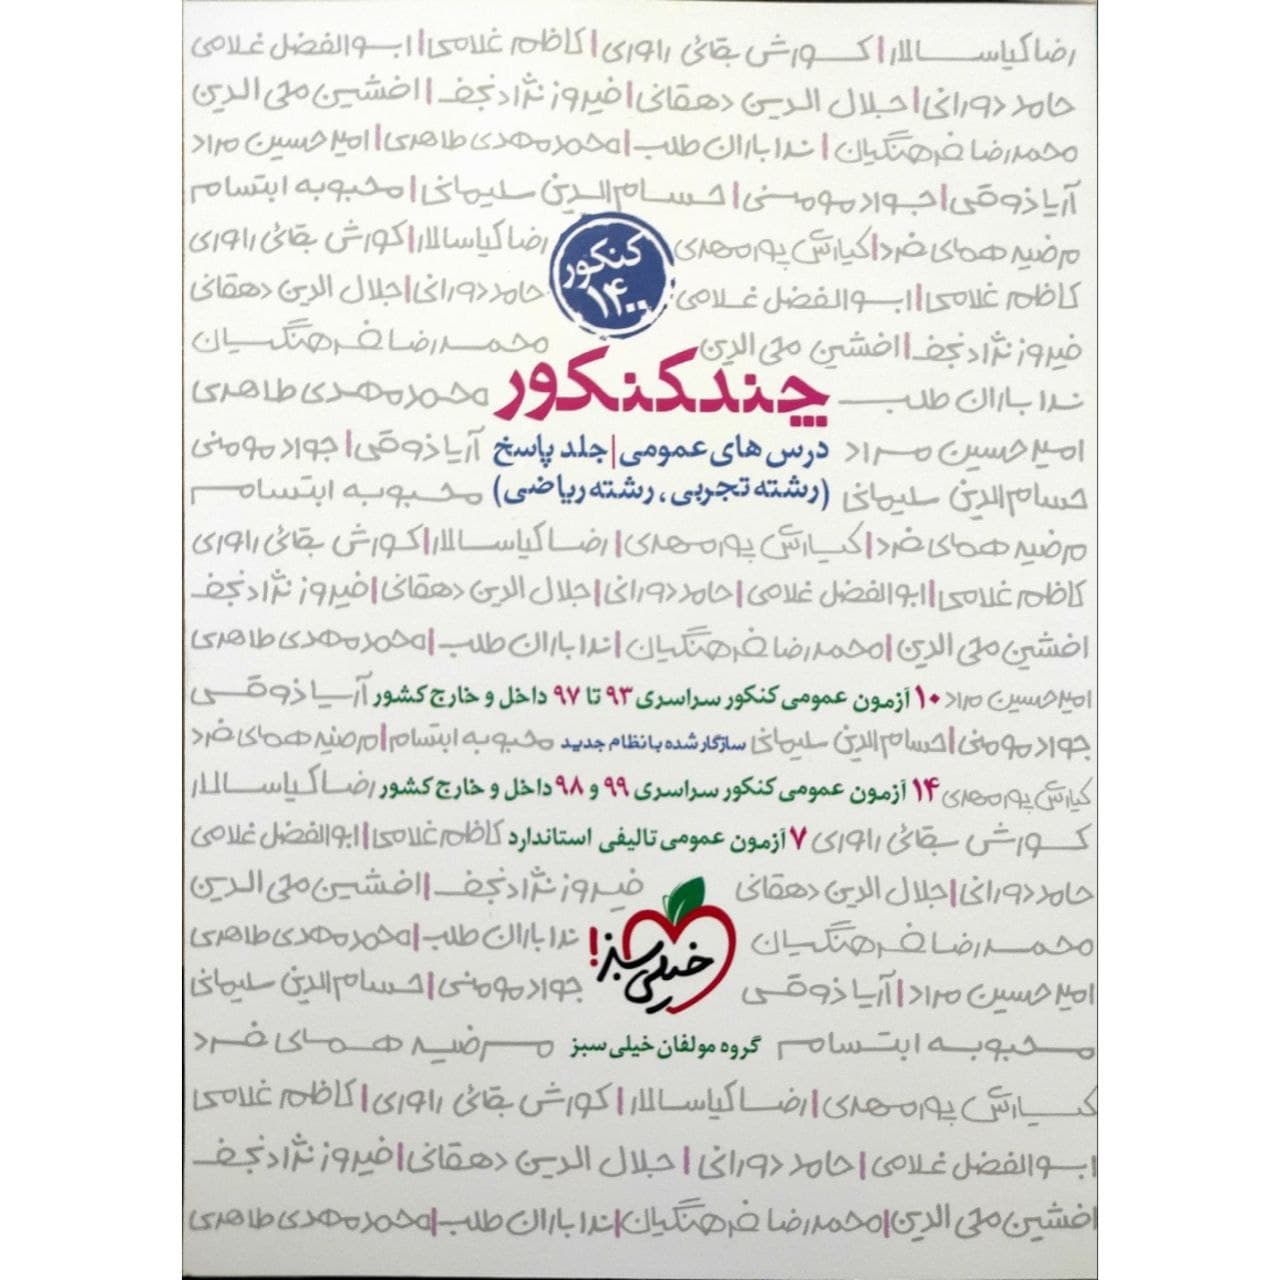 رضا کیاسالار | کورش بقائی راوری | کاظم غلامی | ابوالفضل غلامی
حامد دورانی | جلال الدین دهقانی | فیروز نژادنجف | افشین محی الدین
محمدرضا فرهنگیان | ندا باران طلب | محمدمهدی طاهری | امیرحسین مراد
آریا ذوقی | جواد مومنی | حسام الدین سلیمانی | محبوبه ابتسام
مرضیه همای فرد | کیارش پورمهدی
رضا کیاسالار | کورش بقائی راوری
کنکور
۱۴۰۰
کاظم غلامی | ابوالفضل غلامی
حامد دورانی | جلال الدین دهقانی
فیروز نژادنجف | افشین محی الدین
محمدرضا فرهنگیان
چندکنکور
ندا باران طلب
محمدمهدی طاهری
امیرحسین مراد
درس های عمومی | جلد پاسخ
آریا ذوقی | جواد مومنی
حسام الدین سلیمانی
(رشته تجربی، رشته ریاضی)
محبوبه ابتسام
مرضیه همای فرد | کیارش پورمهدی | رضا کیاسالار | کورش بقائی راوری
کاظم غلامی | ابوالفضل غلامی | حامد دورانی | جلال الدین دهقانی | فیروز نژادنجف
افشین محی الدین | محمدرضا فرهنگیان | ندا باران طلب | محمدمهدی طاهری
امیرحسین مراد ۱۰ آزمون عمومی کنکور سراسری ۹۳ تا ۹۷ داخل و خارج کشور آریا ذوقی
جواد مومنی | حسام الدین سلیمانی سازگار شده با نظام جدید محبوبه ابتسام | مرضیه همای فرد
کیارش پورمهدی ۱۴ آزمون عمومی کنکور سراسری ۹۹ و ۹۸ داخل و خارج کشور رضا کیاسالار
کورش بقائی راوری ۷ آزمون عمومی تالیفی استاندارد کاظم غلامی | ابوالفضل غلامی
حامد دورانی | جلال الدین دهقانی فیروز نژادنجف | افشین محی الدین
محمدرضا فرهنگیان ندا باران طلب | محمدمهدی طاهری
خیلی سبز!
امیرحسین مراد | آریا ذوقی جواد مومنی | حسام الدین سلیمانی
محبوبه ابتسام گروه مولفان خیلی سبز مرضیه همای فرد
کیارش پورمهدی | رضا کیاسالار | کورش بقائی راوری | کاظم غلامی
ابوالفضل غلامی | حامد دورانی | جلال الدین دهقانی | فیروز نژادنجف
افشین محی الدین | محمدرضا فرهنگیان | ندا باران طلب | محمدمهدی طاهری